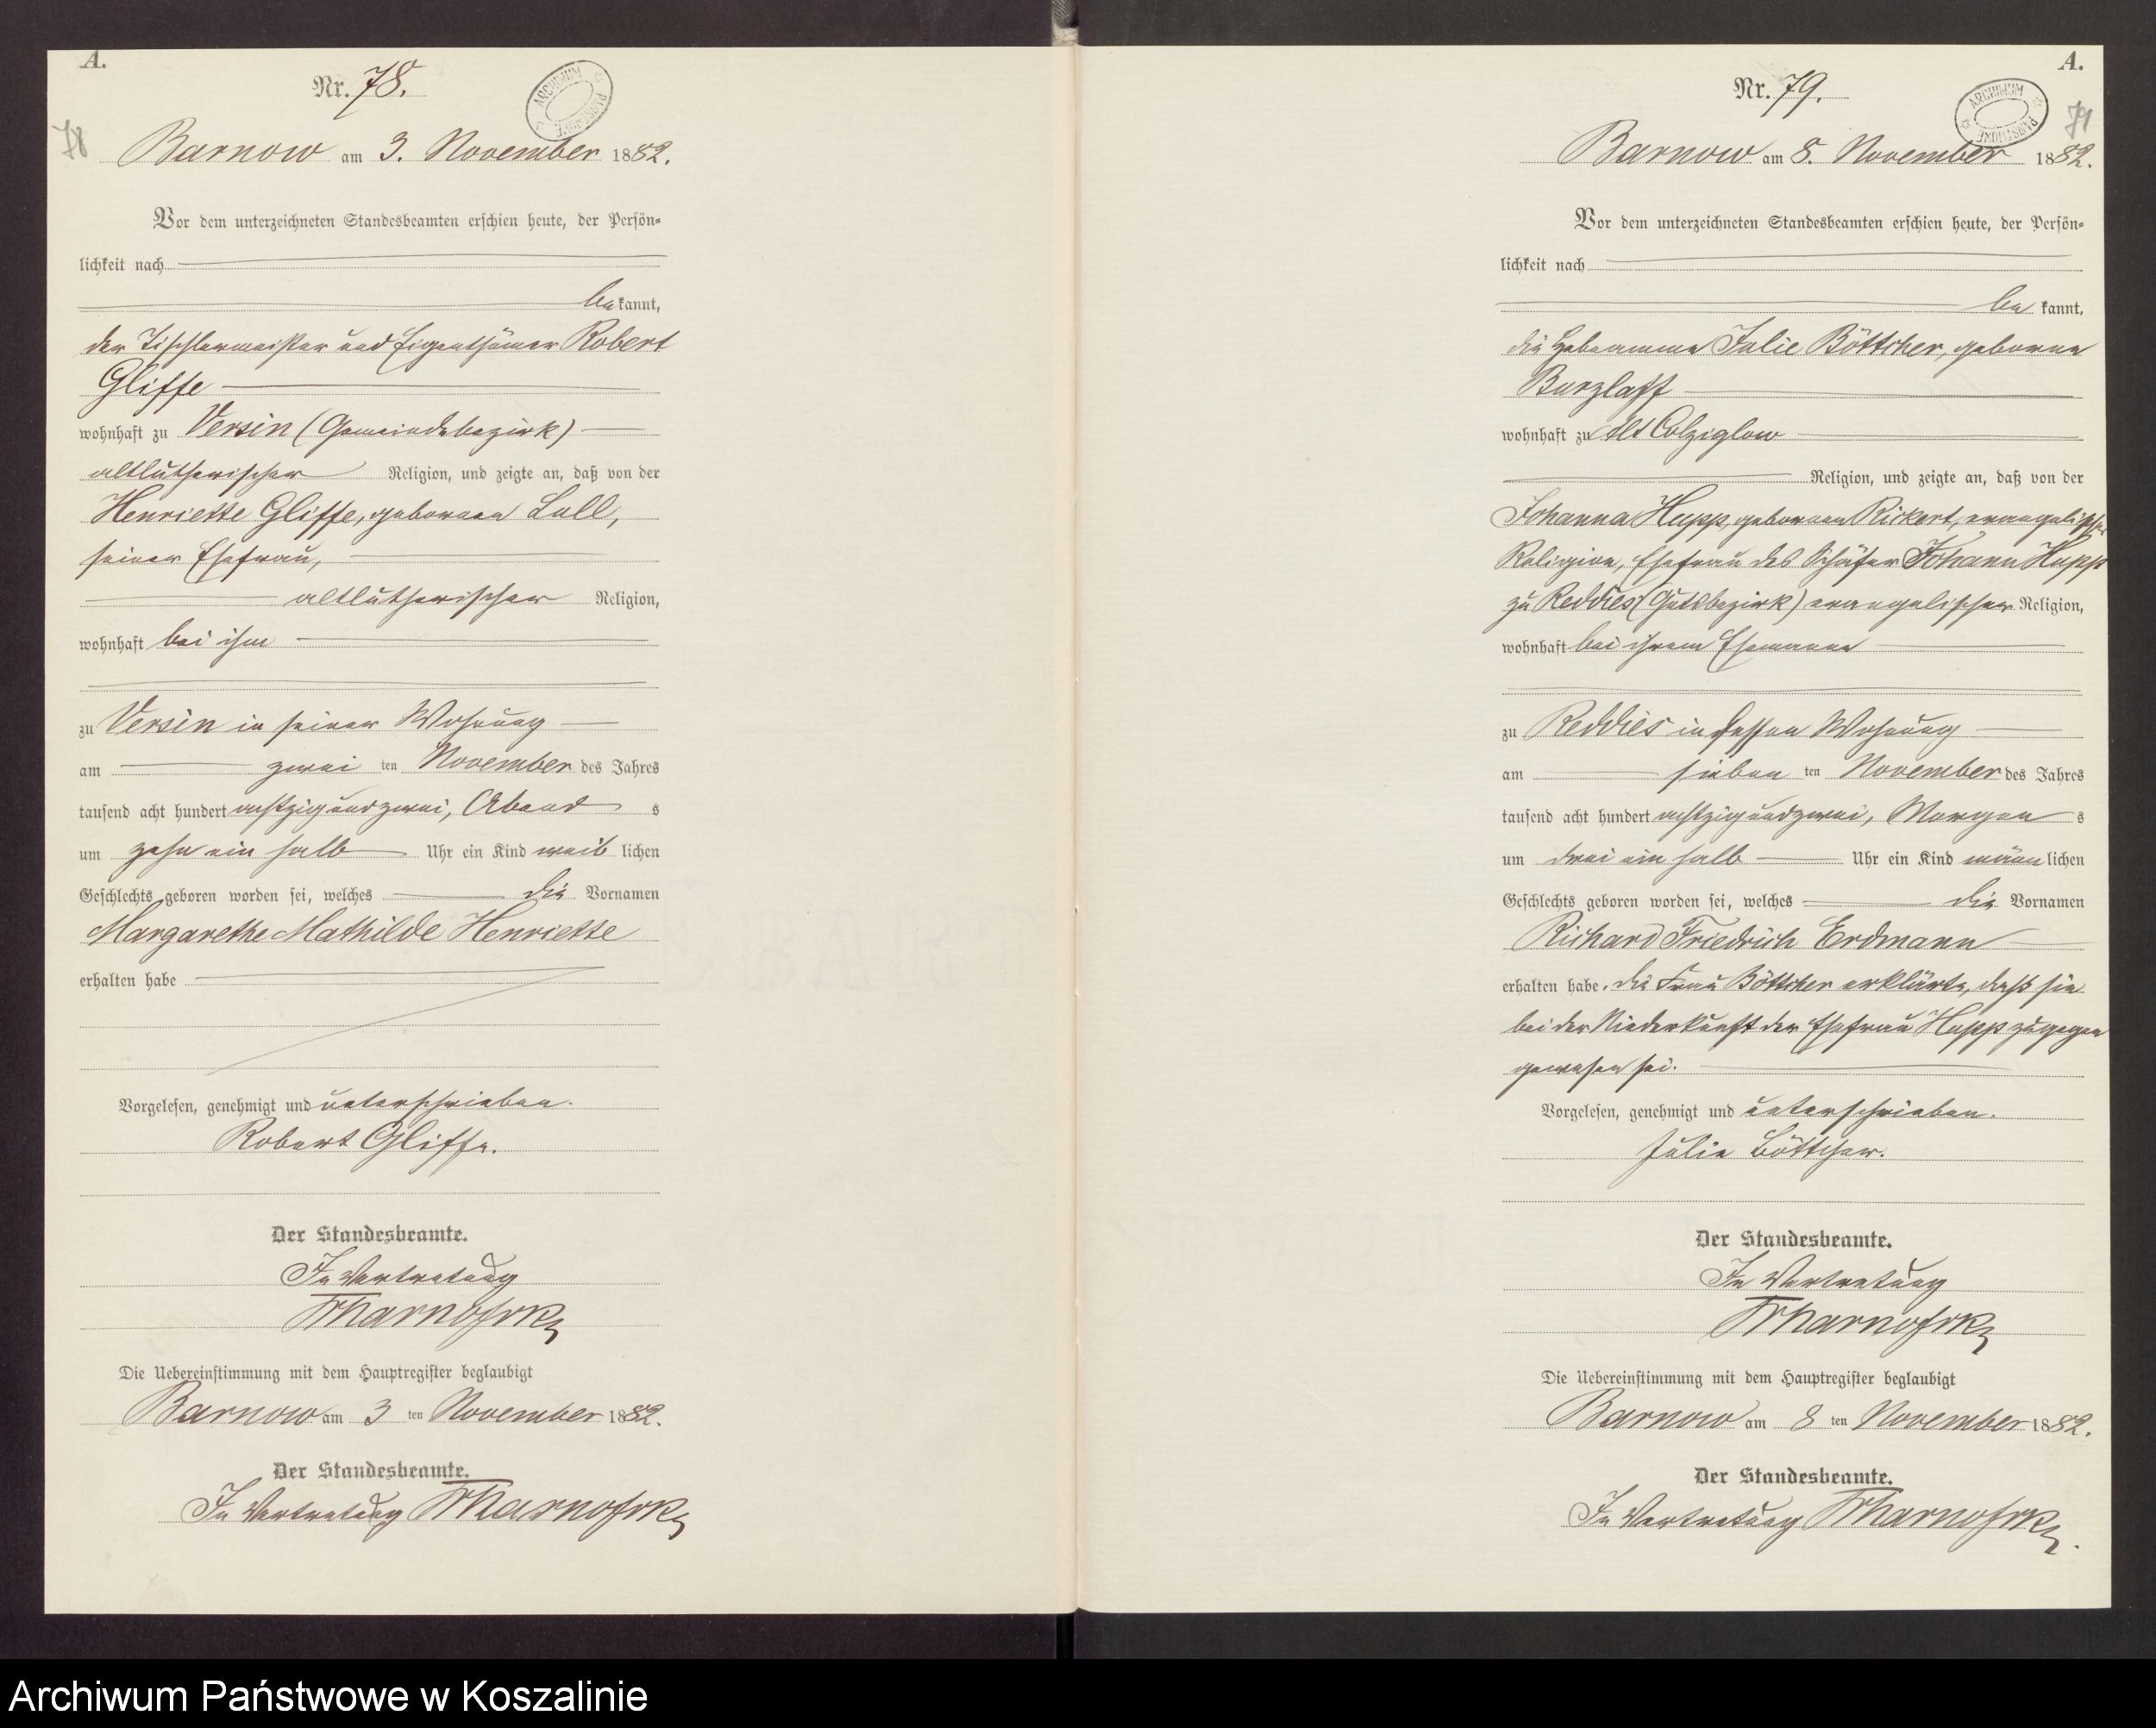 A.
Nr. 78.
78
Barnow am 3. November 1882.
Vor dem unterzeichneten Standesbeamten erschien heute, der Persön-
lichkeit nach
bekannt,
der Tischlermeister und Eigenthümer Robert
Gliffe
wohnhaft zu Versin (Gemeindebezirk)
altlutherischer Religion, und zeigte an, daß von der
Henriette Gliffe, geborenen Lull,
seiner Ehefrau,
altlutherischer Religion,
wohnhaft bei ihm
zu Versin in seiner Wohnung
am zwei ten November des Jahres
tausend acht hundert achtzig und zwei, Abend s
um zehn ein halb Uhr ein Kind weib lichen
Geschlechts geboren worden sei, welches die Vornamen
Margarethe Mathilde Henriette
erhalten habe
Vorgelesen, genehmigt und unterschrieben.
Robert Gliffe.
Der Standesbeamte.
In Vertretung
Die Uebereinstimmung mit dem Hauptregister beglaubigt
Barnow am 3 ten November 1882.
Der Standesbeamte.
In Vertretung
A.
Nr. 79.
79
Barnow am 8. November 1882.
Vor dem unterzeichneten Standesbeamten erschien heute, der Persön-
lichkeit nach
be kannt,
die Hebeamme Julie Böttcher, geborne
Burzlaff
wohnhaft zu Alt Colziglow
Religion, und zeigte an, daß von der
Johanna Hupp, geborenen Rickert, evangelischer
Religion, Ehefrau des Schäfer Johann Hupp
zu Reddies (Gutsbezirk) evangelischer Religion,
wohnhaft bei ihrem Ehemanne
zu Reddies in dessen Wohnung
am sieben ten November des Jahres
tausend acht hundert achtzig und zwei, Morgen s
um drei ein halb Uhr ein Kind männ lichen
Geschlechts geboren worden sei, welches die Vornamen
Richard Friedrich Erdmann
erhalten habe. Die Frau Böttcher erklärte, daß sie
bei der Niederkunft der Ehefrau Hupp zugegen
gewesen sei.
Vorgelesen, genehmigt und unterschrieben.
Julie Böttcher.
Der Standesbeamte.
In Vertretung
Die Uebereinstimmung mit dem Hauptregister beglaubigt
Barnow am 8 ten November 1882.
Der Standesbeamte.
In Vertretung
Archiwum Państwowe w Koszalinie